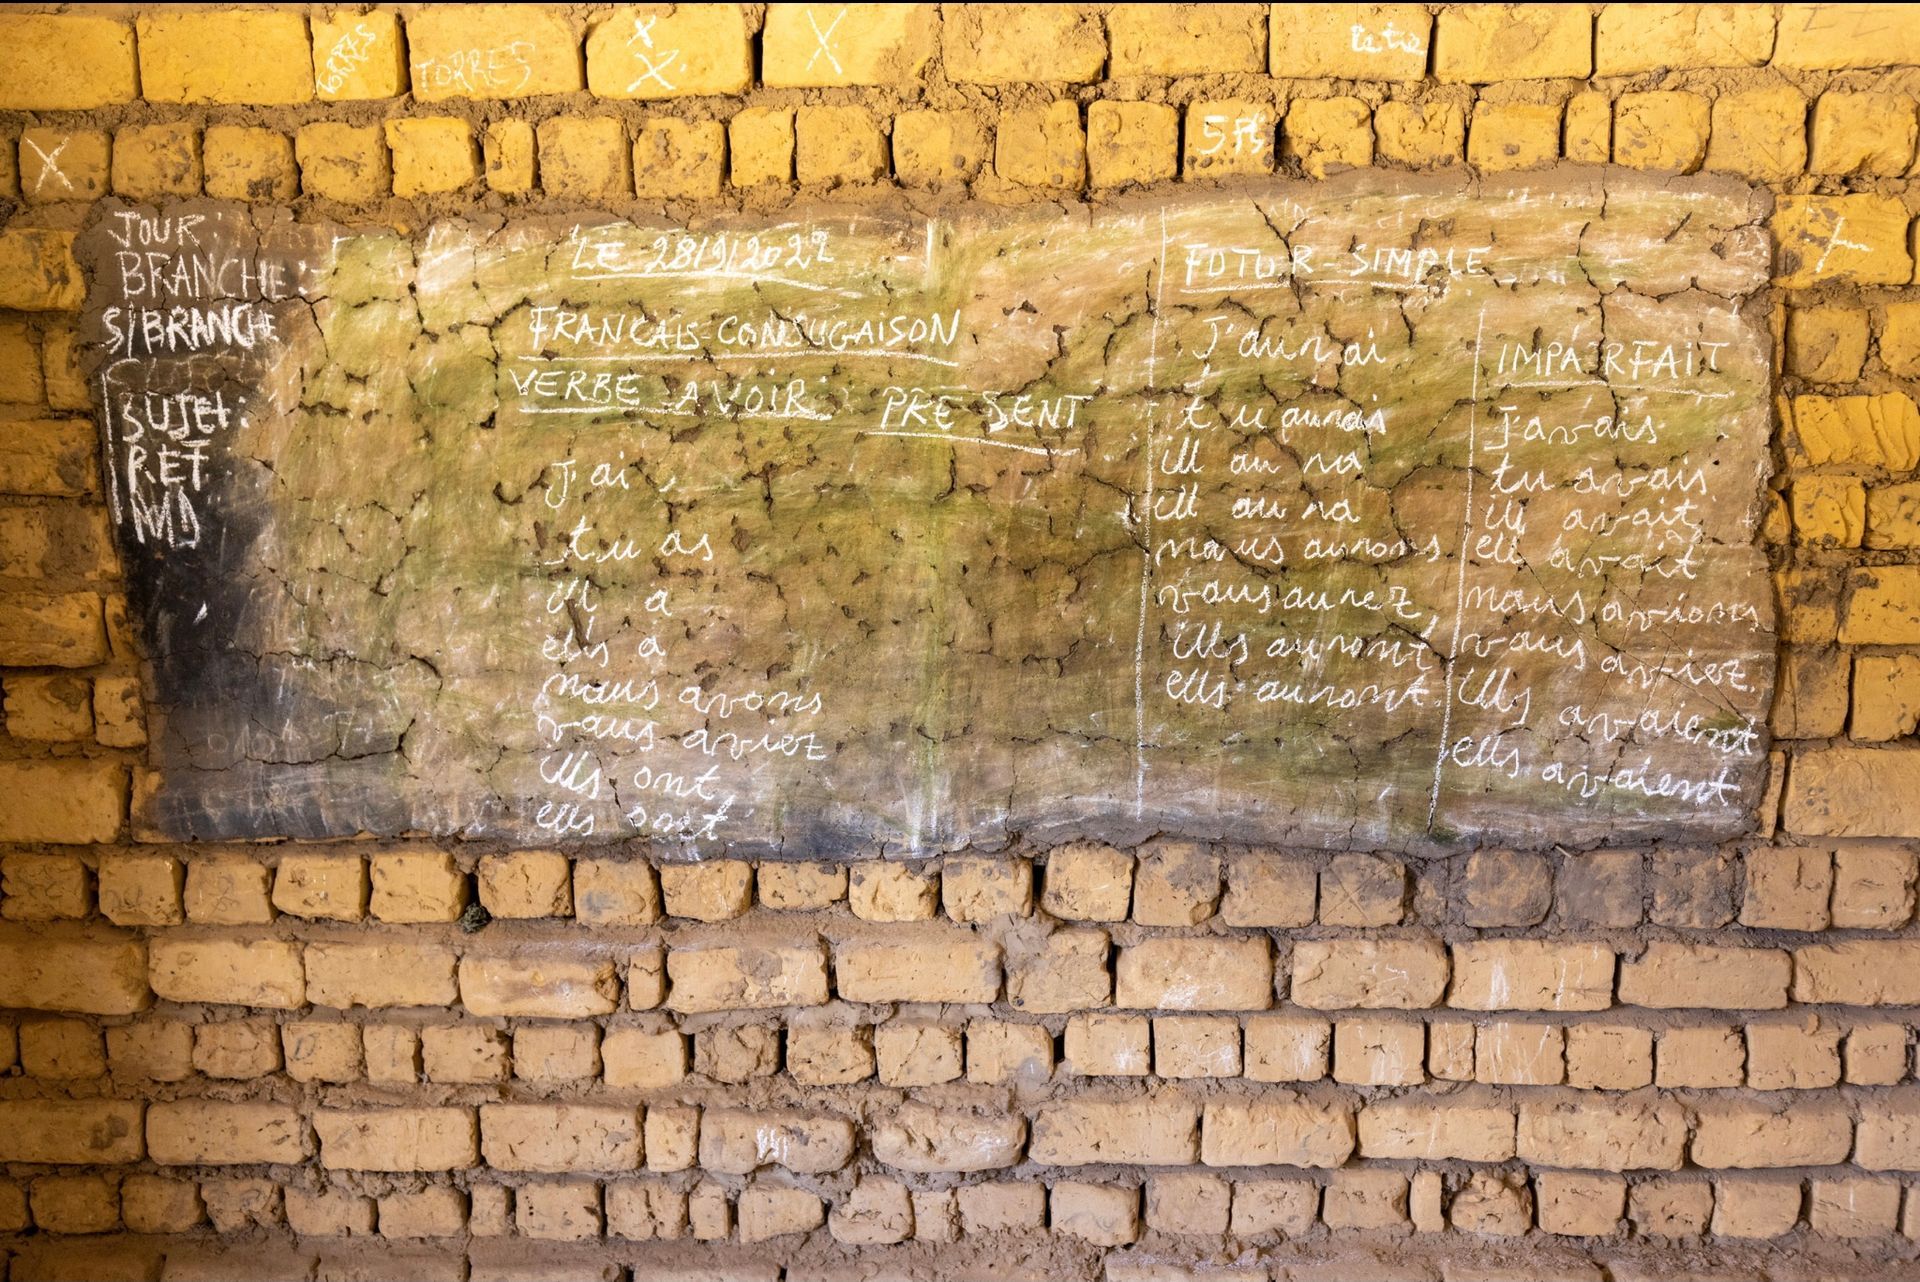 TORRES
TORRES
X
X
X
X
JOUR:
BRANCHE:
S/BRANCHE
SUJET:
REF:
MD
LE 28/9/2022
FRANCAIS-CONJUGAISON
VERBE AVOIR: PRESENT
J'ai
tu as
ill a
ells a
nous avons
vous aviez
ills ont
ells ont
FUTUR-SIMPLE
J'aurai
tu auras
ill aura
ell aura
nous aurons
vous aurez
ills auront
ells auront.
IMPARFAIT
J'avais
tu avais
ill avait
ell avait
nous avions
vous aviez.
ills avaient
ells avaient